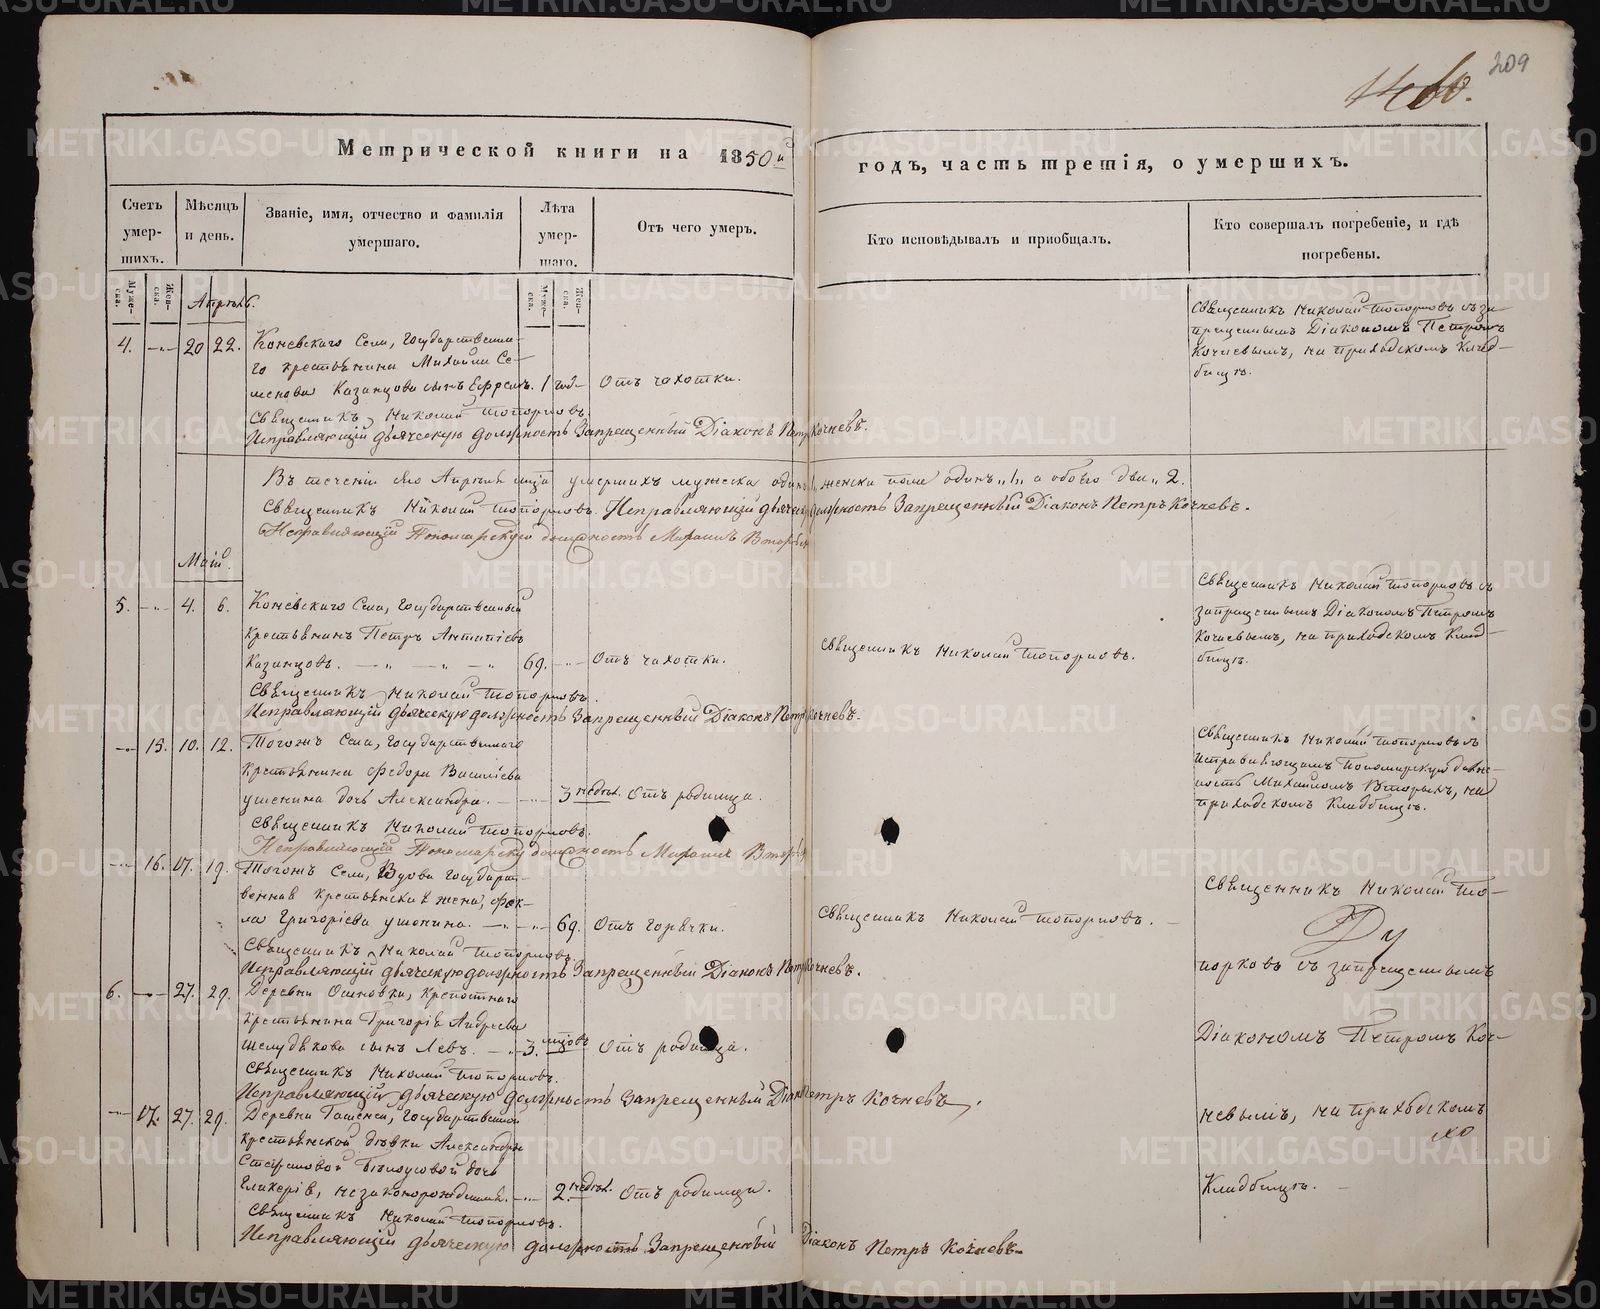 209
Метрической книги на 1850й
годъ, часть третія, о умершихъ.
Счетъ умер-шихъ.
Мѣсяцъ и день.
Званіе, имя, отчество и фамилія умершаго.
Лѣта умер-шаго.
Отъ чего умеръ.
Кто исповѣдывалъ и приобщалъ.
Кто совершалъ погребеніе, и гдѣ погребены.
Муже-ска.
Жен-ска.
Муже-ска.
Жен-ска.
Апрѣль.
4. 20 22. Коневскаго Села, Государственна-
го крестьянина Михаила Се-
менова Казанцова сынъ Ефремъ. 1 год. Отъ чахотки.
Священникъ Николай Топорковъ съ за-
прещеннымъ Діакономъ Петромъ
Кочневымъ, на приходскомъ Клад-
бищѣ.
Священникъ Николай Топорковъ.
Исправляющій дьяческую должность Запрещенный Діаконъ Петръ Кочневъ.
Въ теченіи сего Апрѣля мца умершихъ мужеска одинъ 1, женска пола одинъ „1„ а обоего два „2.
Священникъ Николай Топорковъ. Исправляющій дьяческую должность Запрещенный Діаконъ Петръ Кочневъ.
Исправляющій Пономарскую должность
Маій.
5. 4. 6. Коневскаго Села, Государственный
крестьянинъ Петръ Антипіевъ
Казанцовъ. 69. Отъ чахотки.
Священникъ Николай Топорковъ.
Священникъ Николай Топорковъ съ
запрещеннымъ Діакономъ Петромъ
Кочневымъ, на приходскомъ Клад-
бищѣ.
Священникъ Николай Топорковъ.
Исправляющій дьяческую должность Запрещенный Діаконъ Петръ Кочневъ.
15. 10. 12. Тогожъ Села, Государственнаго
крестьянина Федора Василіева
Ушенина дочь Александра. 3 недѣл. Отъ родимца.
Священникъ Николай Топорковъ съ
Исправляющимъ Пономарскую долж-
ность Михаиломъ Вторыхъ, на
приходскомъ Кладбищѣ.
Священникъ Николай Топорковъ.
Исправляющій Пономарску должность
16. 17. 19. Тогожъ Села, Вдова Государст-
венная крестьянская жена, Фек-
ла Григоріева Ушенина. 69. Отъ горячки.
Священникъ Николай Топорковъ.
Священникъ Николай То-
порковъ съ запрещеннымъ
Діакономъ Петромъ Коч-
невымъ, на приходскомъ
Кладбищѣ.
Священникъ Николай Топорковъ.
Исправляющій дьяческую должность Запрещенный Діаконъ Петръ Кочневъ.
6. 27. 29. Деревни Осиновки, крепостнаго
крестьянина Григорія Андреева
Шелудякова сынъ Левъ. 3. мцовъ Отъ родимца.
Священникъ Николай Топорковъ.
Исправляющій дьяческую должность Запрещенный Діаконъ Петръ Кочневъ.
17. 27. 29. Деревни Ташевой, Государственной
крестьянской дѣвки Александры
Стефановой Бѣлоусовой дочь
Гликерія, незаконорожденная. 2. недѣл. Отъ родимца.
Священникъ Николай Топорковъ.
Исправляющій дьяческую должность Запрещенный Діаконъ Петръ Кочневъ.
METRIKI.GASO-URAL.RU